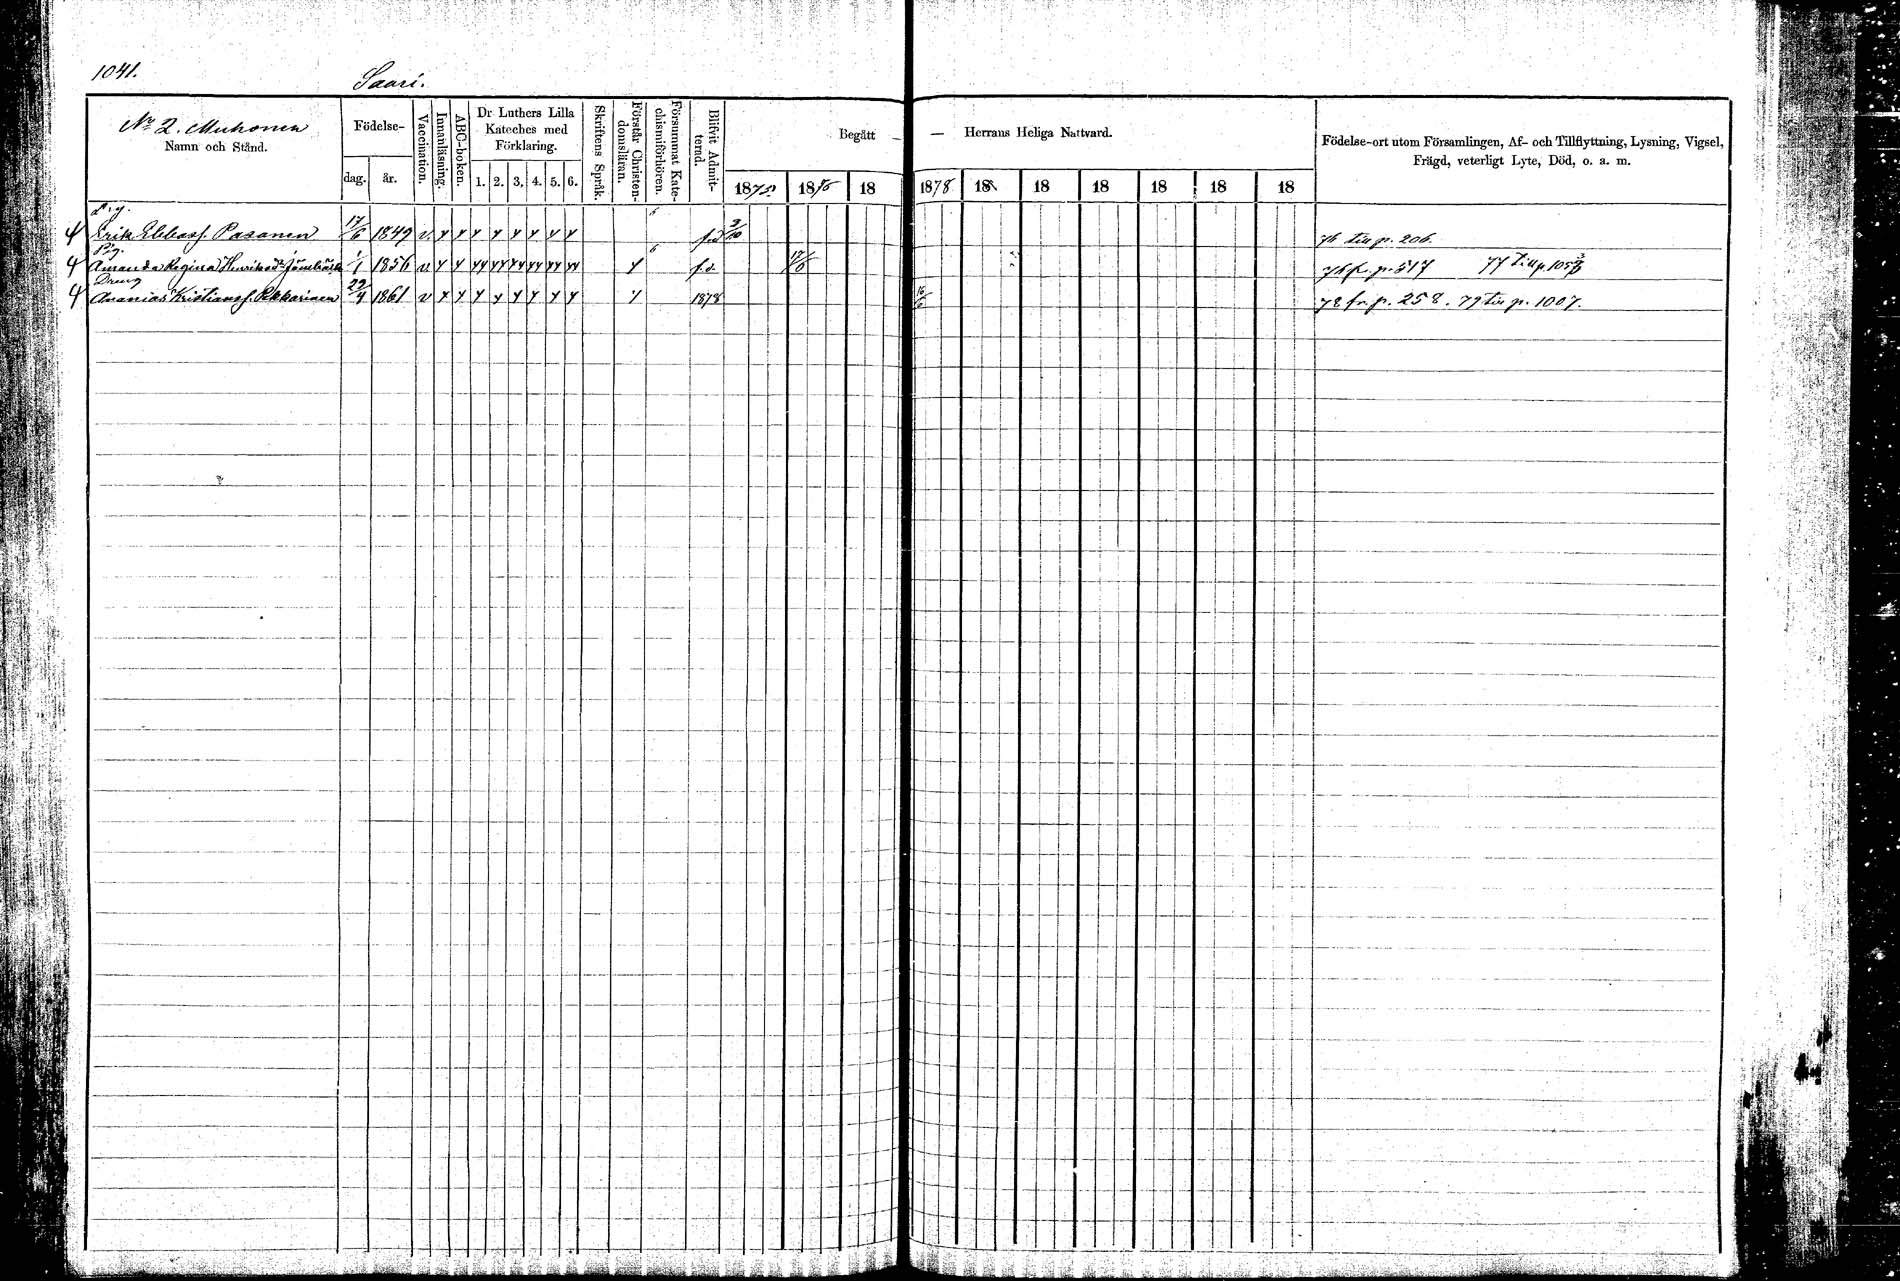 1041.
Saari.
No 2. Muhonen
Namn och Stånd.
Födelse-
dag.
år.
Vaccination.
Innanläsning.
ABC-boken.
Dr Luthers Lilla
Kateches med
Förklaring.
1. 2. 3. 4. 5. 6.
Skriftens Språk.
Förstår Christen-
domsläran.
Försummat Kate-
chismiförhören.
Blifvit Admit-
terad.
Begått — — Herrans Heliga Nattvard.
1875 1876 18 1878 18 18 18 18 18 18
Födelse-ort utom Församlingen, Af- och Tillflyttning, Lysning, Vigsel,
Frägd, veterligt Lyte, Död, o. a. m.
Erik Ebbass. Pasanen 17/6 1849 v. f.d 3/10 76 till p. 206.
Pig.
Amanda Regina Henriksdr 1/1 1856 v. f.d. 17/6 76 fr. p. 517 77 Till p. 105
Dreng
Ananias Kristianss. Pekkarinen 29/4 1861 v 1878 16/6 78 fr. p. 258. 79 till p. 1007.